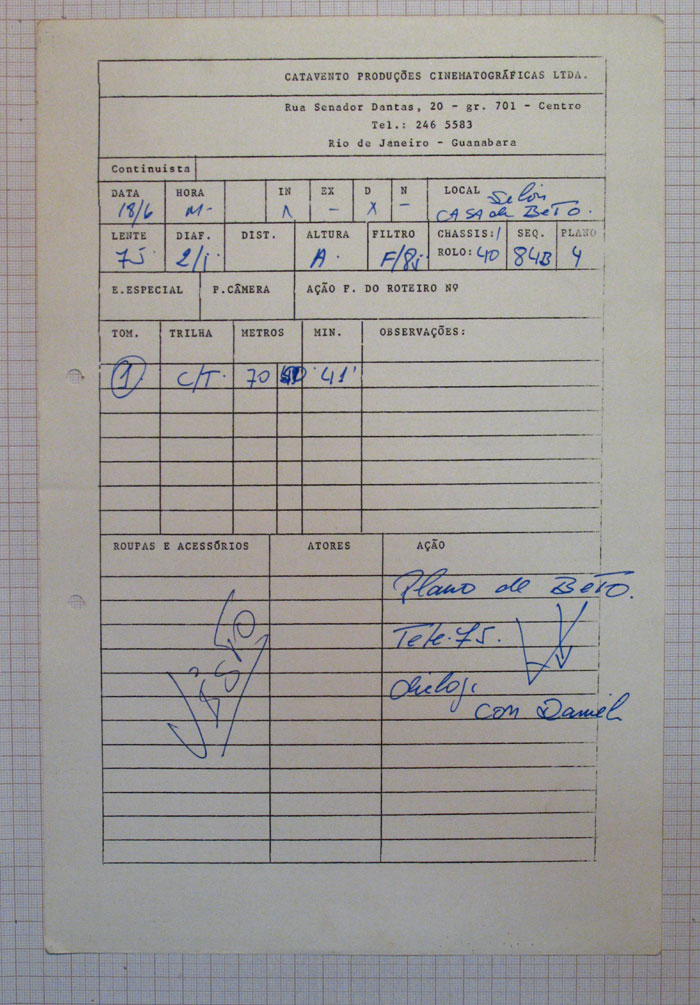 CATAVENTO PRODUÇÕES CINEMATOGRÁFICAS LTDA.
Rua Senador Dantas, 20 - gr. 701 - Centro
Tel.: 246 5583
Rio de Janeiro - Guanabara
Continuista
DATA HORA IN EX D N LOCAL
18/6 M- - X - CASA de BETO.
LENTE DIAF. DIST. ALTURA FILTRO CHASSIS: SEQ. PLANO
75 A. ROLO: 40 84B 4
E.ESPECIAL P.CÂMERA AÇÃO P. DO ROTEIRO Nº
TOM. TRILHA METROS MIN. OBSERVAÇÕES:
1 C/T. 70 41'
ROUPAS E ACESSÓRIOS ATORES AÇÃO
Plano de BETO.
Tele. 75.
com Daniel